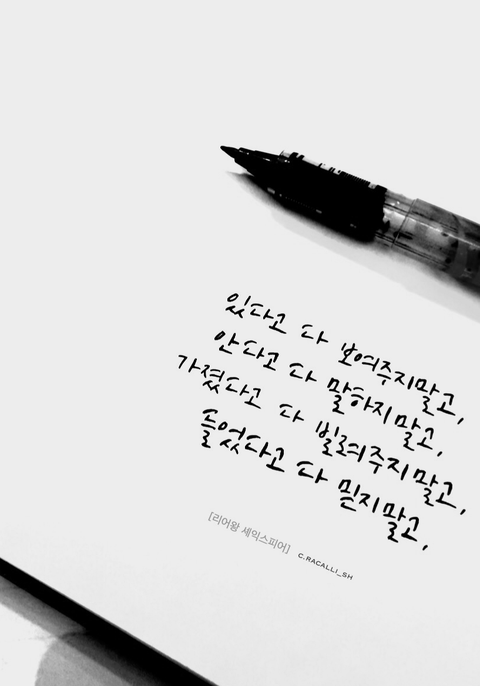 있다고 다 보여주지말고,
안다고 다 말하지말고,
가졌다고 다 빌려주지말고,
들었다고 다 믿지말고,
[리어왕 셰익스피어] C.RACALLI_SH